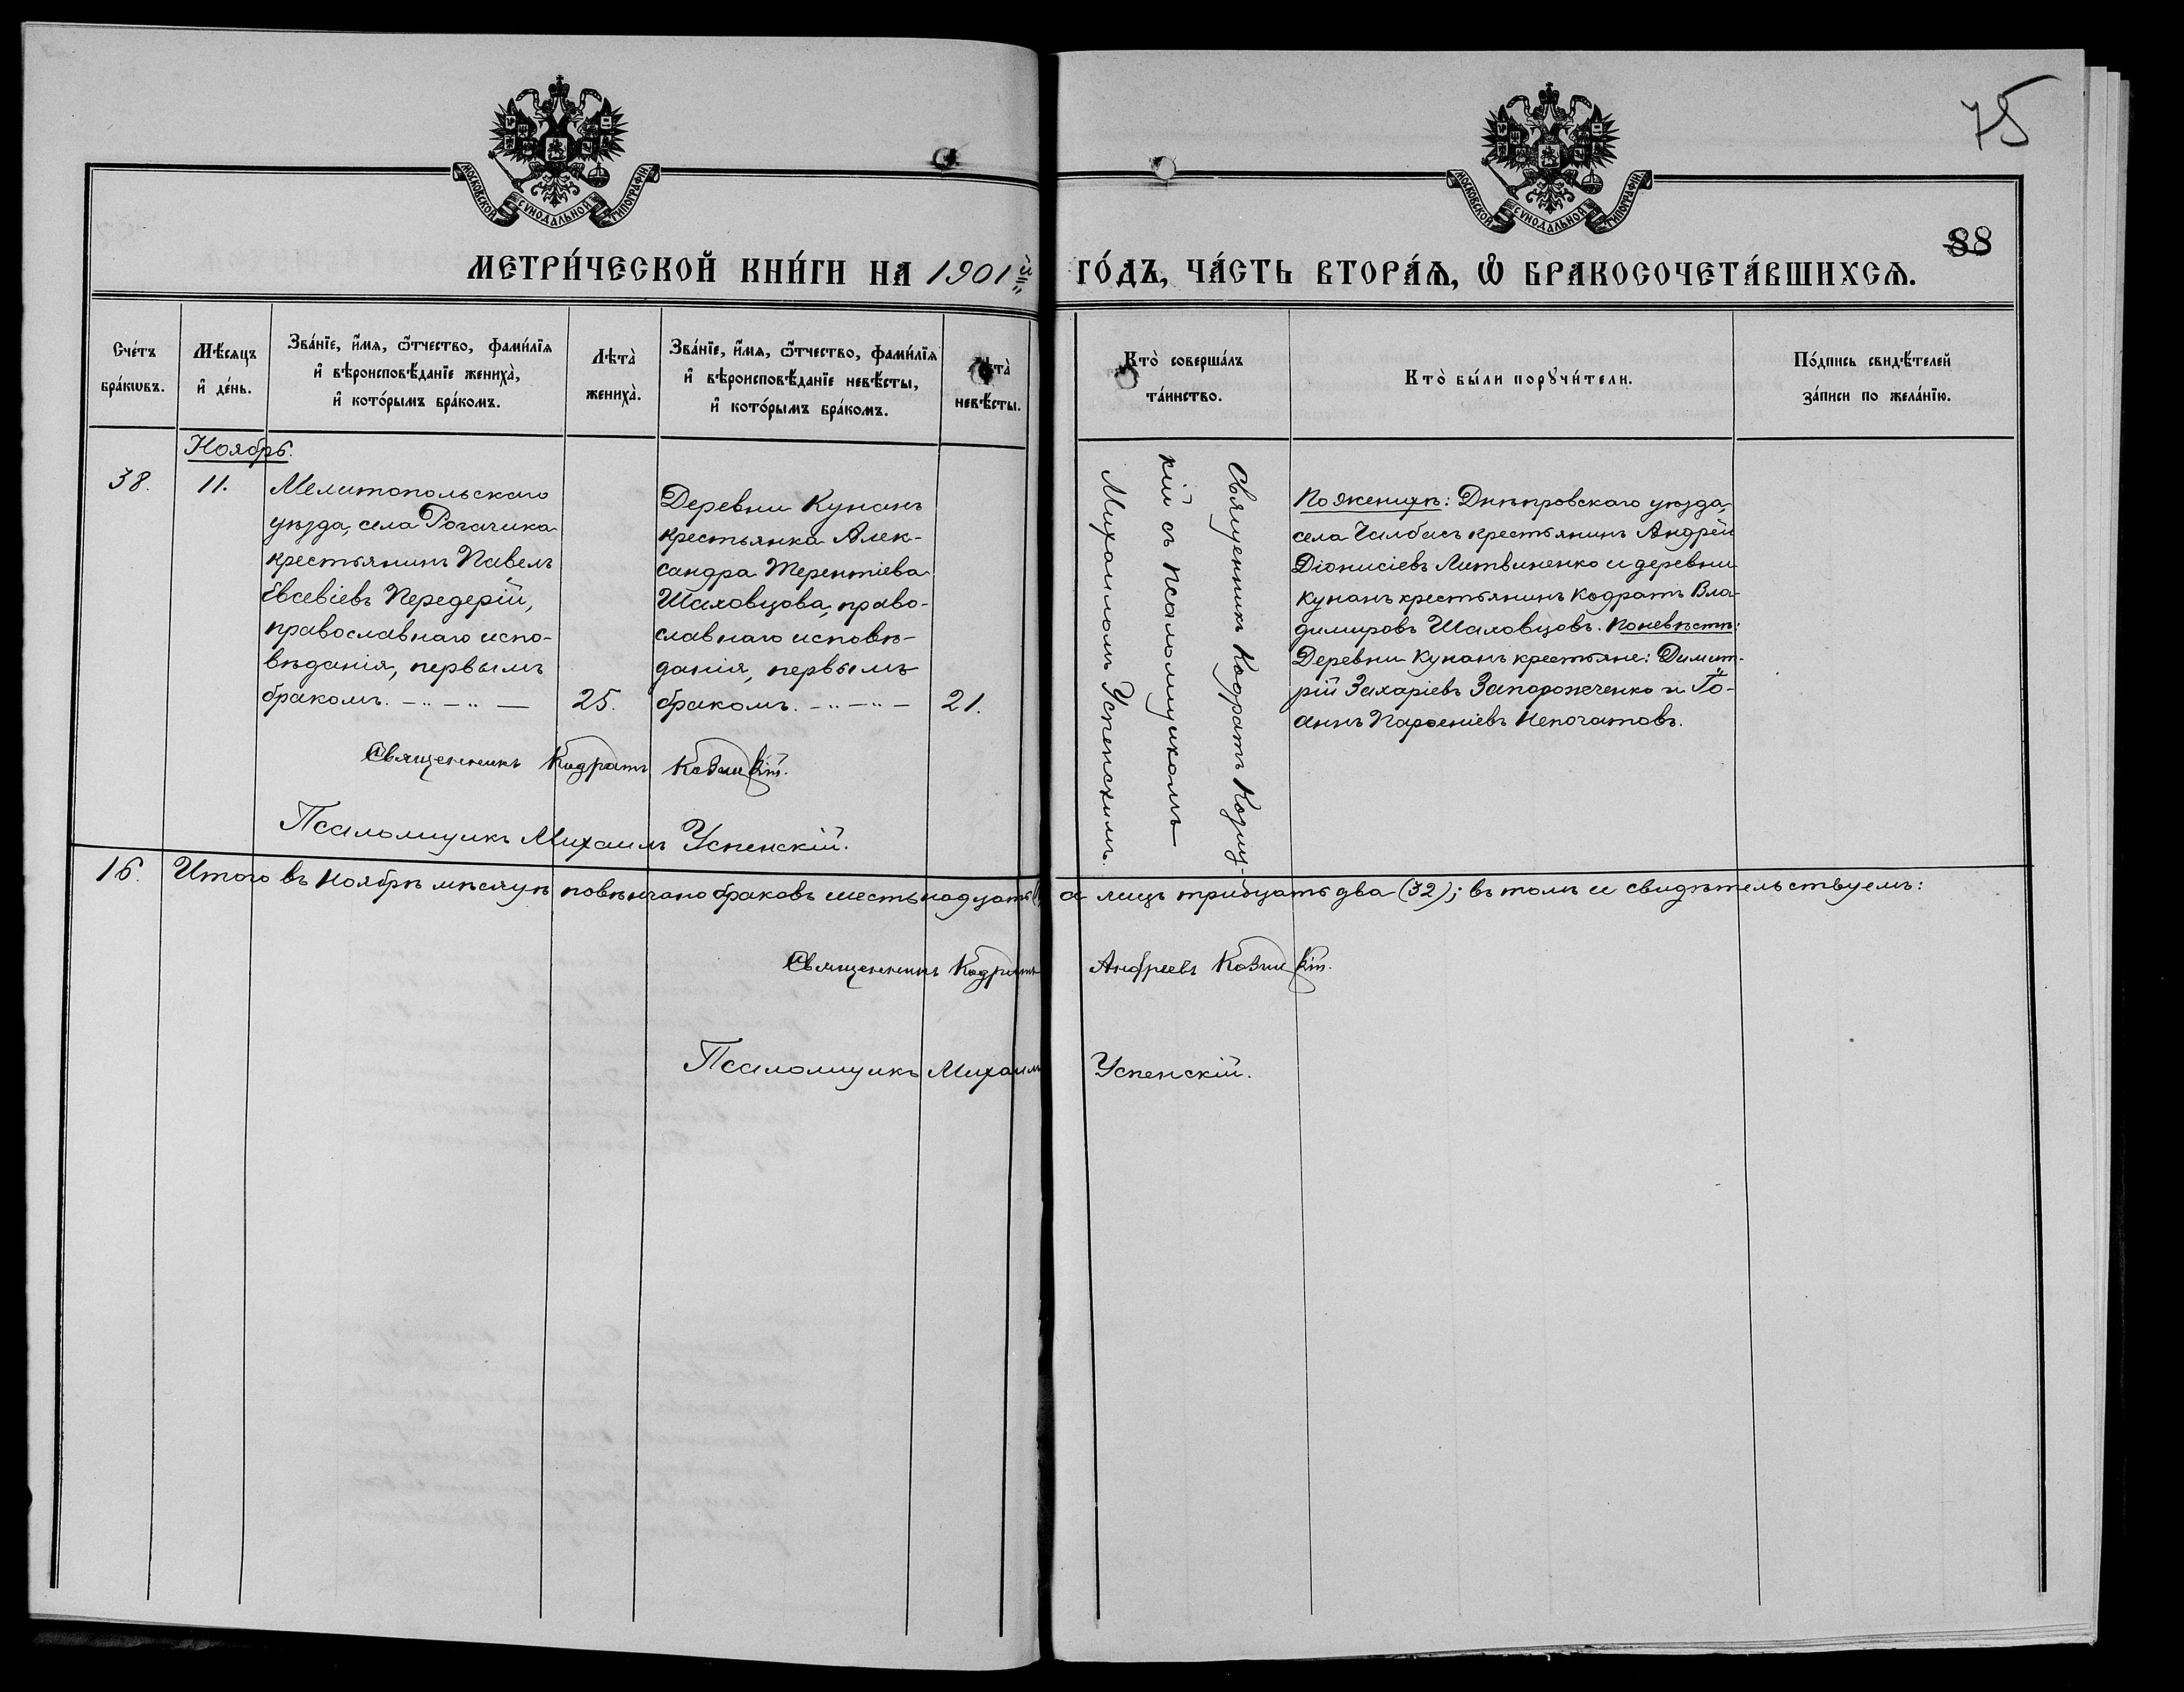 75
88
МОСКОВСКОЙ СѴНОДАЛЬНОЙ ТИПОГРАФІИ
МОСКОВСКОЙ СѴНОДАЛЬНОЙ ТИПОГРАФІИ
МЕТРИ́ЧЕСКОЙ КНИ́ГИ НА 1901й ГО́ДЪ, ЧА́СТЬ ВТОРА́Ѧ, Ѽ БРАКОСОЧЕТА́ВШИХСѦ.
Сче́тъ
бра́кѡвъ.
Мѣ́сяцъ
и҆ де́нь.
Зва́нїе, и҆́мя, ѻ҆́тчество, фами́лїя
и҆ вѣроисповѣ́данїе жениха̀,
и҆ кото́рымъ бра́комъ.
Лѣта̀
жениха̀.
Зва́нїе, и҆́мя, ѻ҆́тчество, фами́лїя
и҆ вѣроисповѣ́данїе невѣ́сты,
и҆ кото́рымъ бра́комъ.
Лѣта̀
невѣ́сты.
Кто̀ соверша́лъ
та́инство.
Кто̀ бы́ли порꙋчи́тели.
По́дпись свидѣ́телей
за́писи по жела́нїю.
Ноябрь.
38.
11.
Мелитопольскаго
уѣзда, села Рогачика
крестьянинъ Павелъ
Евсевіевъ Передерій,
православнаго испо-
вѣданія, первымъ
бракомъ. — „ — „ —
25.
Деревни Кунанъ
крестьянка Алек-
сандра Терентіева
Шаховцова, право-
славнаго исповѣ-
данія, первымъ
бракомъ. — „ — „ —
21.
Священникъ Кодратъ Козиц-
кій съ псаломщикомъ
Михаиломъ Успенскимъ.
По женихѣ: Днѣпровскаго уѣзда,
села Чалбасъ крестьянинъ Андрей
Діонисіевъ Литвиненко и деревни
Кунанъ крестьянинъ Кодратъ Вла-
димировъ Шаховцовъ. По невѣстѣ:
Деревни Кунанъ крестьяне: Димит-
рій Захаріевъ Запорожченко и Іо-
аннъ Парѳеніевъ Непочатовъ.
Священникъ Кодратъ Козицкій.
Псаломщикъ Михаилъ Успенскій.
16. Итого въ Ноябрѣ мѣсяцѣ повѣнчано браковъ шестьнадцать а лицъ тридцать два (32); въ томъ и свидѣтельствуемъ:
Священникъ Кодратъ Андреевъ Козицкій.
Псаломщикъ Михаилъ Успенскій.